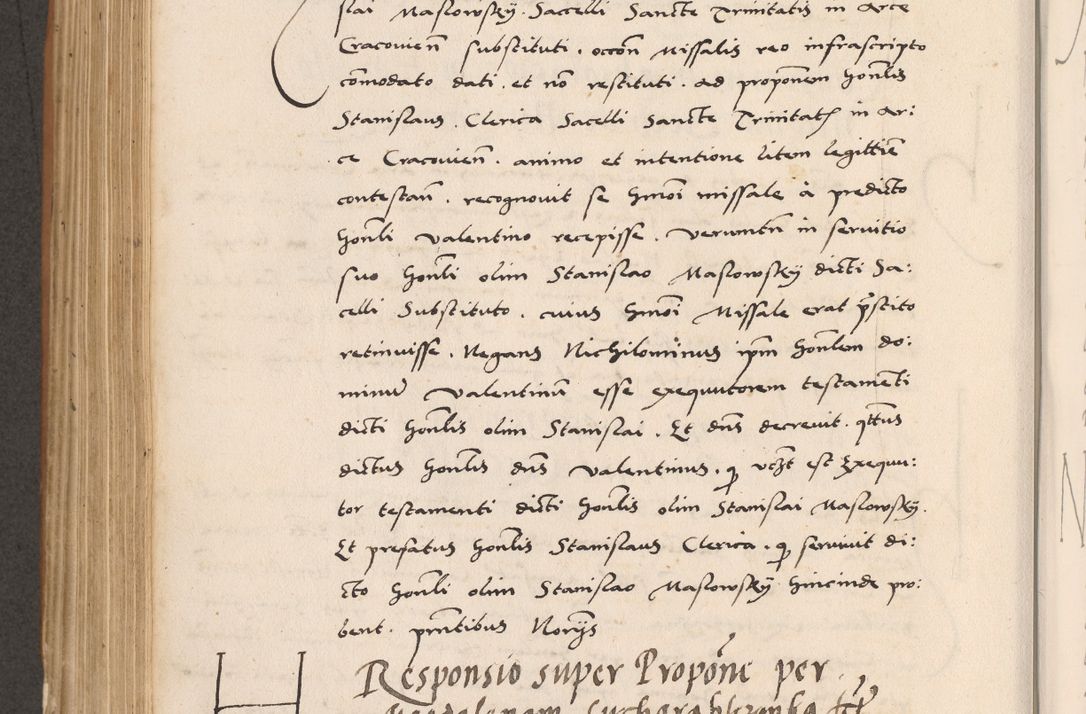 slai Maslowsky. Sacelli Sancte Trinitatis in Arce
Cracovien̄ substituti. occōn Missalis reo infrascripto
cōmodato dati. et nō restituti. ad proponem honīlis
Stanislaus. Clerica Sacelli Sancte Trinitatis in Ar:
ce Cracovien̄. animo et intentione litem legittīe
contestan̄. recognovit se hmōi missale à predicto
honīli Valentino recepisse. Verumtn̄ in servitio
suo honīli olim Stanislao Maslowsky dicti Sa:
celli Substituto. cuius hmōi Missale erat p̄stito
retinuisse. Negans Nichilominus ipm̄ honīlem do:
minū Valentinū esse exequutorem testamēti
dicti honīlis olim Stanislai. Et dn̄s decrevit. qttus
dictus honīlis dn̄s Valentinus. q vczt est Exequu:
tor testamenti dicti honīlis olim Stanislai Maslowsky.
Et prefatus honīlis Stanislaus Clerica. q servivit di:
cto honīli olim Stanislao Maslowsky hincinde pro:
bent. pn̄tibus Norijs
Responsio super Propōne per
Magdalenam